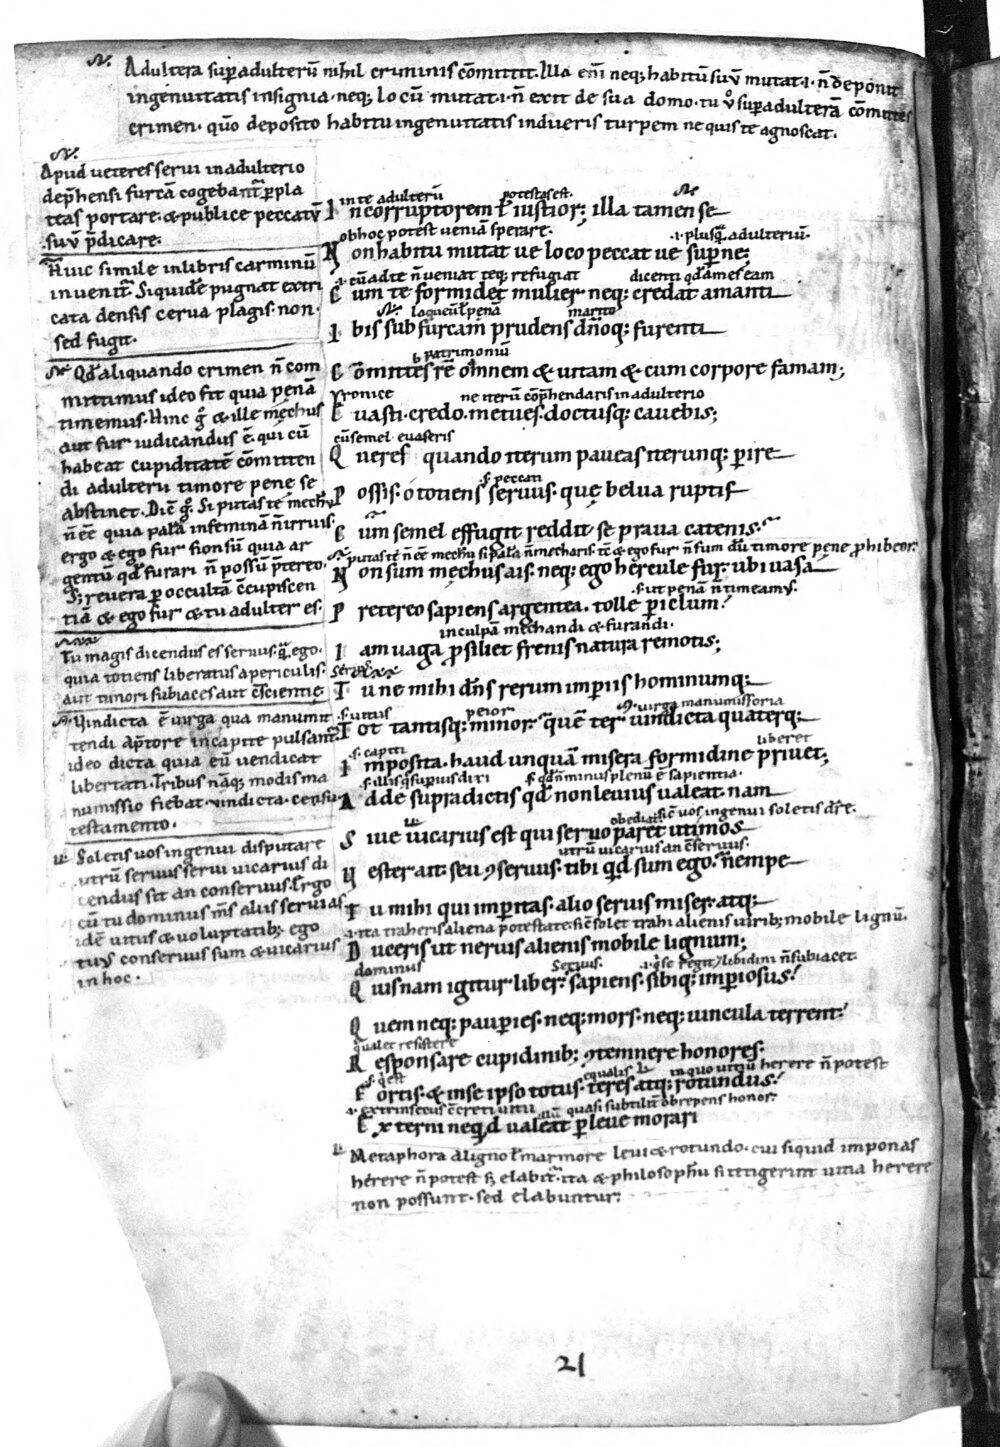 Adultera sup̄adulterū nihil criminis cōmittit. Illa eni̅ neq; habitū suū mutat .i. n̄ deponit
ingenuitatis insignia. neq; locū mutat .i. n̄ exit de sua domo. tu v̊ sup̄adulterā cōmittes
crimen. quo deposito habitu ingenuitatis indueris turpem ne quis te agnoscat.
Apud veteres servi in adulterio
dep̄hensi furcā cogebant̄ p̄ pla
teas portare. & publice peccatū
suū p̄dicare.
Huic simile in libris carminū
invenit̄. Siquidē pugnat extri
cata densis cerva plagis. non
sed fugit.
Qd̄ aliquando crimen n̄ com
mittimus ideo fit quia penā
timemus. Hinc g̊ & ille mechus
aut fur iudicandus ē. qui cū
habeat cupiditatē cōmitten
di adulterii timore pene se
abstinet. Dic̄ g̊. Si putas te mechū
n̄ ēē quia palā in feminā n̄ irruis
ergo & ego fur non sū quia ar
gentū qd̄ furari n̄ possū p̄tereo.
S; revera p̄ occultā c̄cupiscen
tiā & ego fur & tu adulter es.
Tu magis dicendus es servus. q̄ ego.
quia totiens liberatus a periculis.
aut timori subiaces aut c̄scientię
Vindicta ē virga qua manumit
tendi a p̄tore in capite pulsant̄.
ideo dicta quia eū vendicat
libertati. Tribus naq; modis ma
numissio fiebat. vindicta. censu
testamento.
Soletis vos ingenui disputare
utrū servus servi vicarius di
cendus sit an conservus. Ergo
cū tu dominus m̄s aliis servias
idē vitiis & voluptatib; ego
tuus conservus sum & vicarius
in hoc.
in te adulterū potestas est.
In corruptorem ł iustior; illa tamen se
ob hoc potest veniā sperare. .i. plusq̄ adulteriū.
Non habitu mutat ve loco peccat ve sup̄ne;
.i. cū ad te n̄ veniat teq; refugiat dicenti qd̄ ames eam
Cum te formidet mulier neq; credat amanti
laqueū ł penā marito
Ibis sub furcam prudens dn̄oq; furenti
patrimoniū
Cōmittes rē omnem & vitam & cum corpore famam;
yronice ne iterū cōp̄hendaris in adulterio
Evasti. credo. metues. doctusq; cavebis;
cū semel evaseris
Queres quando iterum paveas iterunq; p̄ire
.s. peccati
Possis. o totiens servus. quę belua ruptis
Cum semel effugit reddit se prava catenis.
putas tē n̄ ēē mechū si palā n̄ mecharis. tc̄ & ego fur n̄ sum dū timore pene p̄hibeor.
Non sum męchus ais. neq; ego hercule fur. ubi vasa
.s. ut penā n̄ timeamꝰ.
Pretereo sapiens argentea. tolle p̄iclum.
in culpā mechandi & furandi.
Iam vaga p̄siliet frenis natura remotis;
Tu ne mihi dn̄s rerum imp̄iis hominunq;
.s. vitiis peior .i. virga manumissoria
Tot tantisq; minor. quē ter vindicta quaterq;
.s. capiti liberet
Imposita. haud unquā misera formidine privet;
.s. illis q̄ sup̄ius dixi .s. qd̄ n̄ minus plenū ē sapientia.
Adde supradictis qd̄ non levius valeat. nam
obediat sic̄ vos ingenui soletis dr̄e.
Sive vicarius est qui servo paret uti mos
utrū vicarius an c̄servus.
Vester ait. seu ꝯservus. tibi quid sum ego. nempe
Tu mihi qui imp̄itas. alio servis miser. atq;
.i. ita traheris aliena potestate. sic̄ solet trahi alienis virib; mobile lignū.
Duceris ut nervis alienis mobile lignum;
dominus Servus. .i. q̄ se regit / libidini n̄ subiacet
Quisnam igitur liber. sapiens. sibiq; imp̄iosus.
Quem neq; paup̄ies. neq; mors. neq; vincula terrent.
qui valet resistere
Responsare cupidinib; ꝯtemnere honores.
.s. q̄ est equalis in quo vitiū herere n̄ potest
Fortis. & in se ipso totus. teres atq; rotundus.
.i. extrinsecus quasi subtilit̄ obrepens honor.
Externi neqd̄ valeat p̄ leve morari
Metaphora a ligno ł marmore levi & rotundo. cui siquid imponas
herere n̄ potest s; elabit̄. ita & philosophū si tetigerint vitia herere
non possunt. sed elabuntur;
21